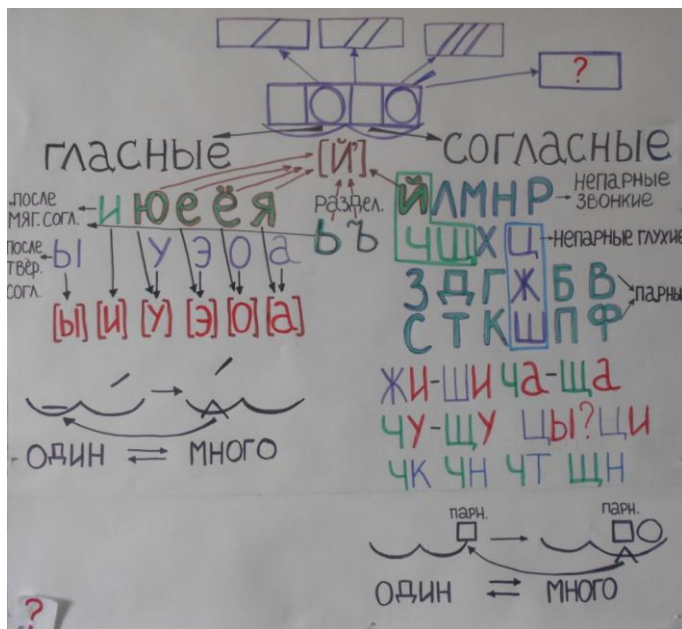 ?
ГЛАСНЫЕ
[Й']
СОГЛАСНЫЕ
после мяг. согл.
И Ю Е Ё Я
раздел.
Ь Ъ
после твёр. согл.
Ы У Э О а
[Ы] [И] [У] [Э] [О] [а]
Й Л М Н Р
НЕПАРНЫЕ ЗВОНКИЕ
Ч Щ Х Ц
НЕПАРНЫЕ ГЛУХИЕ
З Д Г Ж Б В
С Т К Ш П Ф
ПАРНЫ
ЖИ-ШИ ЧА-ЩА
ЧУ-ЩУ ЦЫ?ЦИ
ЧК ЧН ЧТ ЩН
ОДИН МНОГО
ПАРН. ПАРН.
ОДИН МНОГО
?